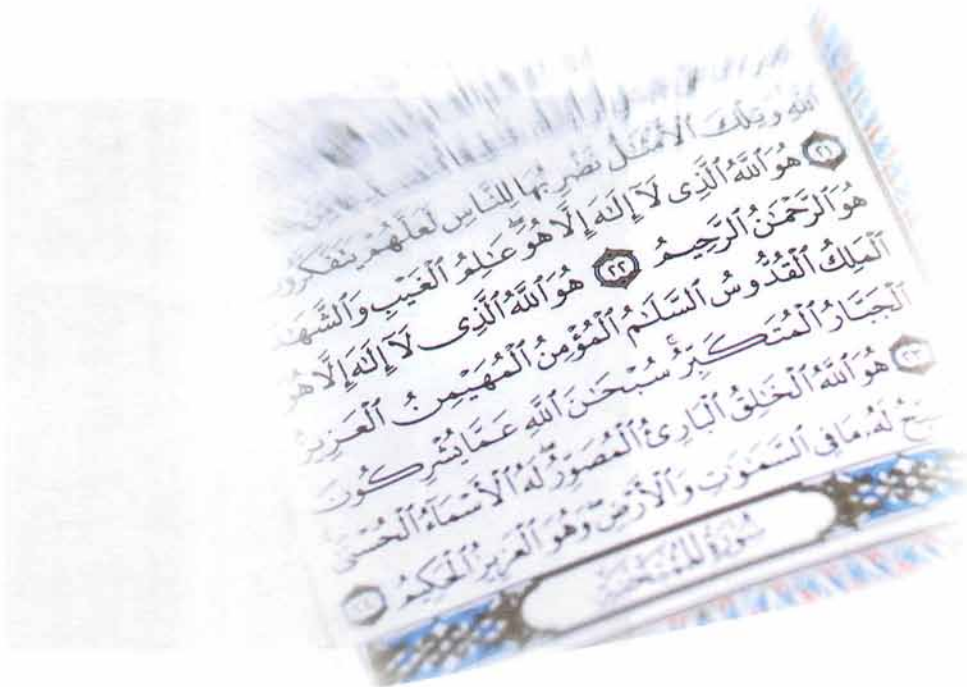 ٱللَّهِ وَتِلْكَ ٱلْأَمْثَٰلُ نَضْرِبُهَا لِلنَّاسِ لَعَلَّهُمْ يَتَفَكَّرُونَ
﴿٢١﴾ هُوَ ٱللَّهُ ٱلَّذِى لَآ إِلَٰهَ إِلَّا هُوَ ۖ عَٰلِمُ ٱلْغَيْبِ وَٱلشَّهَٰدَ
هُوَ ٱلرَّحْمَٰنُ ٱلرَّحِيمُ ﴿٢٢﴾ هُوَ ٱللَّهُ ٱلَّذِى لَآ إِلَٰهَ إِلَّا هُوَ
ٱلْمَلِكُ ٱلْقُدُّوسُ ٱلسَّلَٰمُ ٱلْمُؤْمِنُ ٱلْمُهَيْمِنُ ٱلْعَزِيزُ
ٱلْجَبَّارُ ٱلْمُتَكَبِّرُ ۚ سُبْحَٰنَ ٱللَّهِ عَمَّا يُشْرِكُونَ
﴿٢٣﴾ هُوَ ٱللَّهُ ٱلْخَٰلِقُ ٱلْبَارِئُ ٱلْمُصَوِّرُ ۖ لَهُ ٱلْأَسْمَآءُ ٱلْحُسْنَىٰ
لَهُۥ مَا فِى ٱلسَّمَٰوَٰتِ وَٱلْأَرْضِ ۖ وَهُوَ ٱلْعَزِيزُ ٱلْحَكِيمُ ﴿٢٤﴾
سُورَةُ ٱلْمُمْتَحَنَةِ